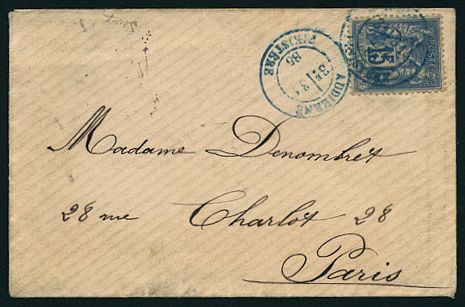 AUDIERNE
FINISTÈRE
86
15
Madame Denombret
28 rue Charlot 28
Paris